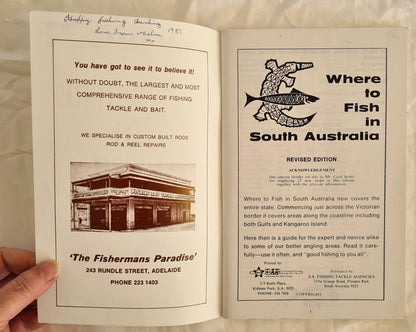 Happy fishing
love from
1987
You have got to see it to believe it!
WITHOUT DOUBT, THE LARGEST AND MOST
COMPREHENSIVE RANGE OF FISHING
TACKLE AND BAIT.
WE SPECIALISE IN CUSTOM BUILT RODS
ROD & REEL REPAIRS
'The Fishermans Paradise'
243 RUNDLE STREET, ADELAIDE
PHONE 223 1403
Where
to
Fish
in
South Australia
REVISED EDITION
ACKNOWLEDGEMENT
Our sincere thanks are due to Mr. Cyril
for supplying 17 new maps in this edition
together with the relevant information.
Where to Fish in South Australia now covers the
entire state. Commencing just across the Victorian
border it covers areas along the coastline including
both Gulfs and Kangaroo Island.
Here then is a guide for the expert and novice alike
to some of our better angling areas. Read it care-
fully—use it often, and "good fishing to you all".
Printed by
Kidman Park, S.A. 5025
PHONE: 356 7020
Published by
S.A. FISHING TACKLE AGENCIES
Grange Road, Flinders Park
South Australia 5025
COPYRIGHT